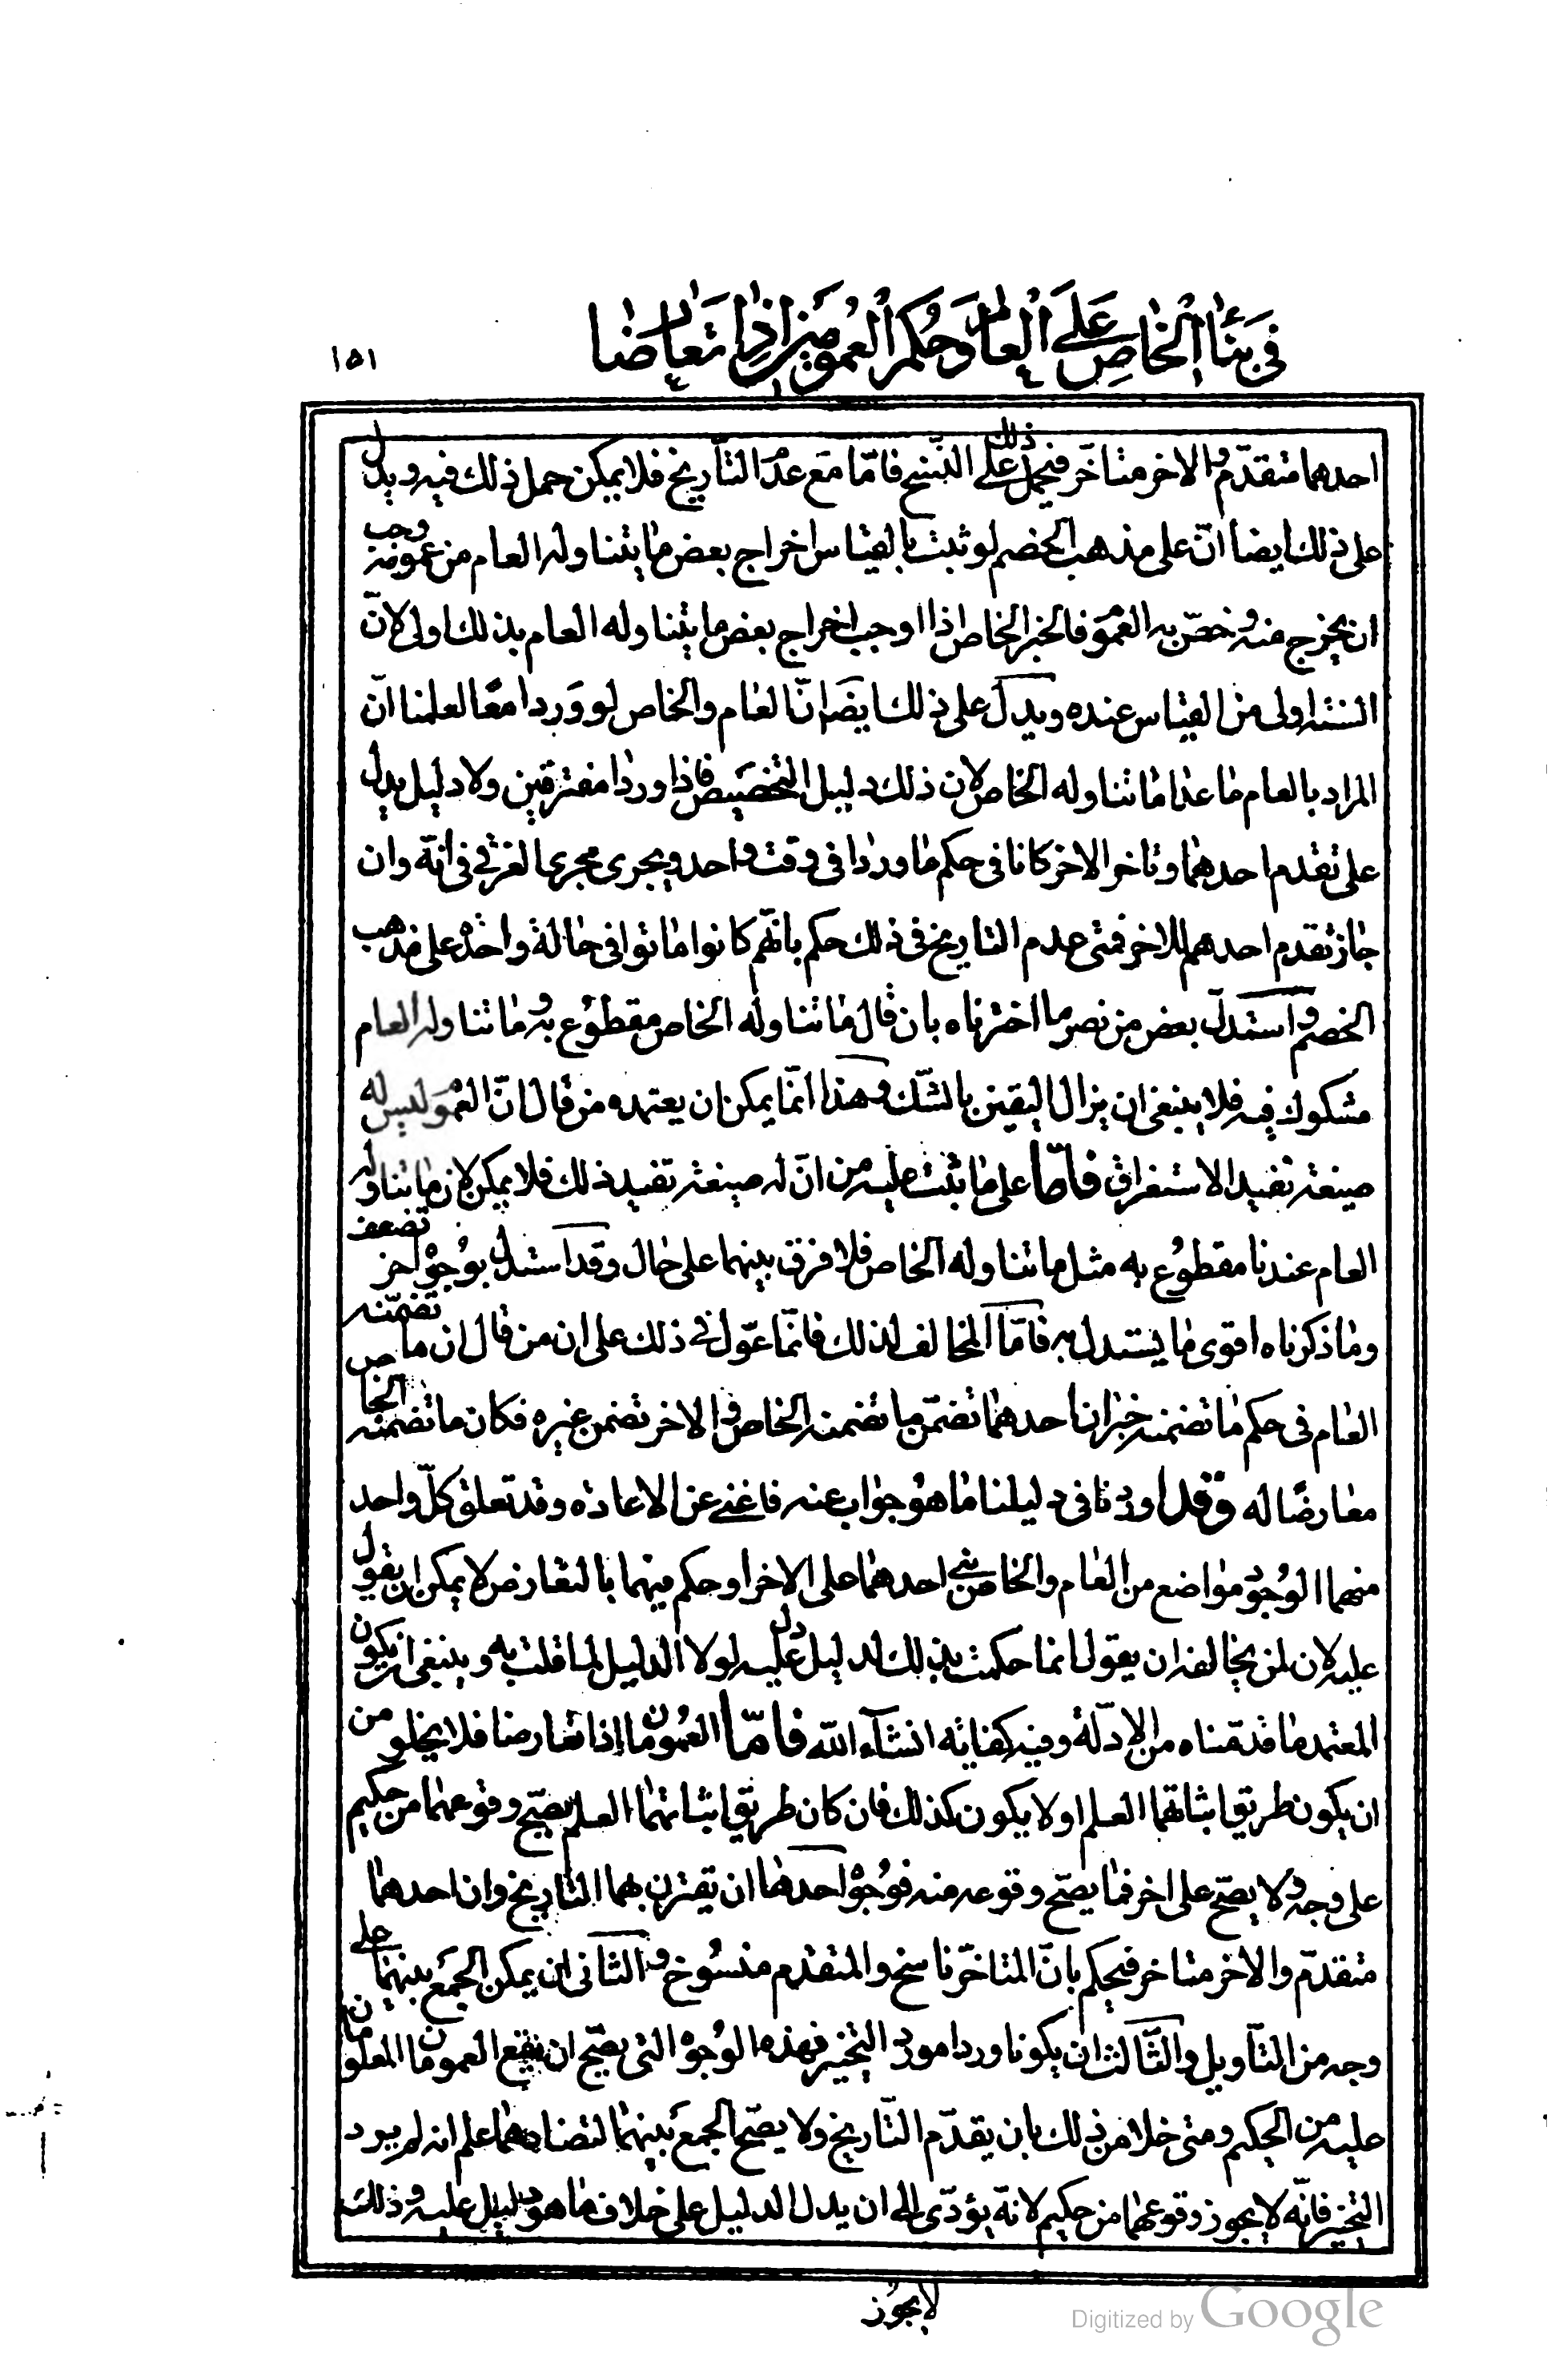 في بناء الخاص على العام وحكم العمومين اذا تعارضا
١٥١
احدهما متقدّم والاخر متاخّر فيحمل ذلك على النّسخ فامّا مع عدم التأريخ فلا يمكن حمل ذلك فيه ويدلّ
على ذلك ايضا انّ على مذهب الخصم لو ثبت بالقياس اخراج بعض ما يتناوله العام من عمومه وجب
ان يخرج منه وخصّ به العموم فالخبر الخاص اذا اوجب اخراج بعض ما يتناوله العام بذلك اولى لانّ
السّنة اولى من القياس عنده ويدلّ على ذلك ايضا انّ العام والخاص لو وردا معًا لعلمنا انّ
المراد بالعام ما عدا ما تناوله الخاص لان ذلك دليل التخصيص فاذا وردا مفترقين ولا دليل يدل
على تقدم احدهما وتاخر الاخر كانا في حكم ما وردا في وقت واحد ويجري مجرى الغرقى في انّه وان
جاز تقدم احدهم للاخر فمتى عدم التاريخ في ذلك حكم بانّهم كانوا ماتوا في حالة واحدة على مذهب
الخصم واستدلّ بعض من نصر ما اخترناه بان قال ما تناوله الخاص مقطوع به وما تناوله العام
مشكوك فيه فلا ينبغي ان يزال اليقين بالشّك وهذا انّما يمكن ان يعتمده من قال انّ العموم ليس له
صيغة تفيد الاستغراق فامّا على ما ثبت عليه من انّ له صيغة تفيد ذلك فلا يمكن لان ما يتناوله
العام عندنا مقطوع به مثل ما تناوله الخاص فلا فرق بينهما على حال وقد استدل بوجوه اخر تضعف
وما ذكرناه اقوى ما يستدل به فامّا المخالف لذلك فانّما عوّل في ذلك على ان من قال ان ما تضمّنه
العام في حكم ما تضمنه خبران احدهما تضمّن ما تضمنه الخاص والاخر تضمن غيره فكان ما تضمنه الخاص
معارضًا له وقد اوردنا في دليلنا ما هو جواب عنه فاغنى عن الاعادة وقد تعلق كلّ واحد
منهما الوجود مواضع من العام والخاص بني احدهما على الاخر او حكم فيهما بالتعارض لا يمكن ان يقول
عليه لان لمن يخالفه ان يقول انما حكمت بذلك لدليل دل عليه لولا الدليل لما قلت به وينبغي ان يكون
المعتمد ما قدّمناه من الادلّة وفيه كفاية انشآء الله فامّا العمومان اذا تعارضا فلا يخلو من
ان يكون طريق اثباتهما العلم او لا يكون كذلك فان كان طريق اثباتهما العلم يصحّ وقوعهما من حكيم
على وجه ولا يصحّ على اخر فما يصحّ وقوعه منه فوجوه احدها ان تقترن بهما التاريخ وان احدهما
متقدّم والاخر متاخر فيحكم بانّ المتاخّر ناسخ والمتقدم منسوخ والثاني ان يمكن الجمع بينهما على
وجه من التاويل والثّالث ان يكونا وردا مورد التخيير فهذه الوجوه التي يصحّ ان يقع العمومان المعلومان
عليه من الحكيم ومتى خلا من ذلك بان يقدّم التّاريخ ولا يصحّ الجمع بينهما لتضادهما علم انه لم يرد
التخيير فانّه لا يجوز وقوعهما من حكيم لانّه يؤدّي الى ان يدل الدليل على خلاف ما هو دليل عليه وذلك
لا يجوز
Digitized by Google